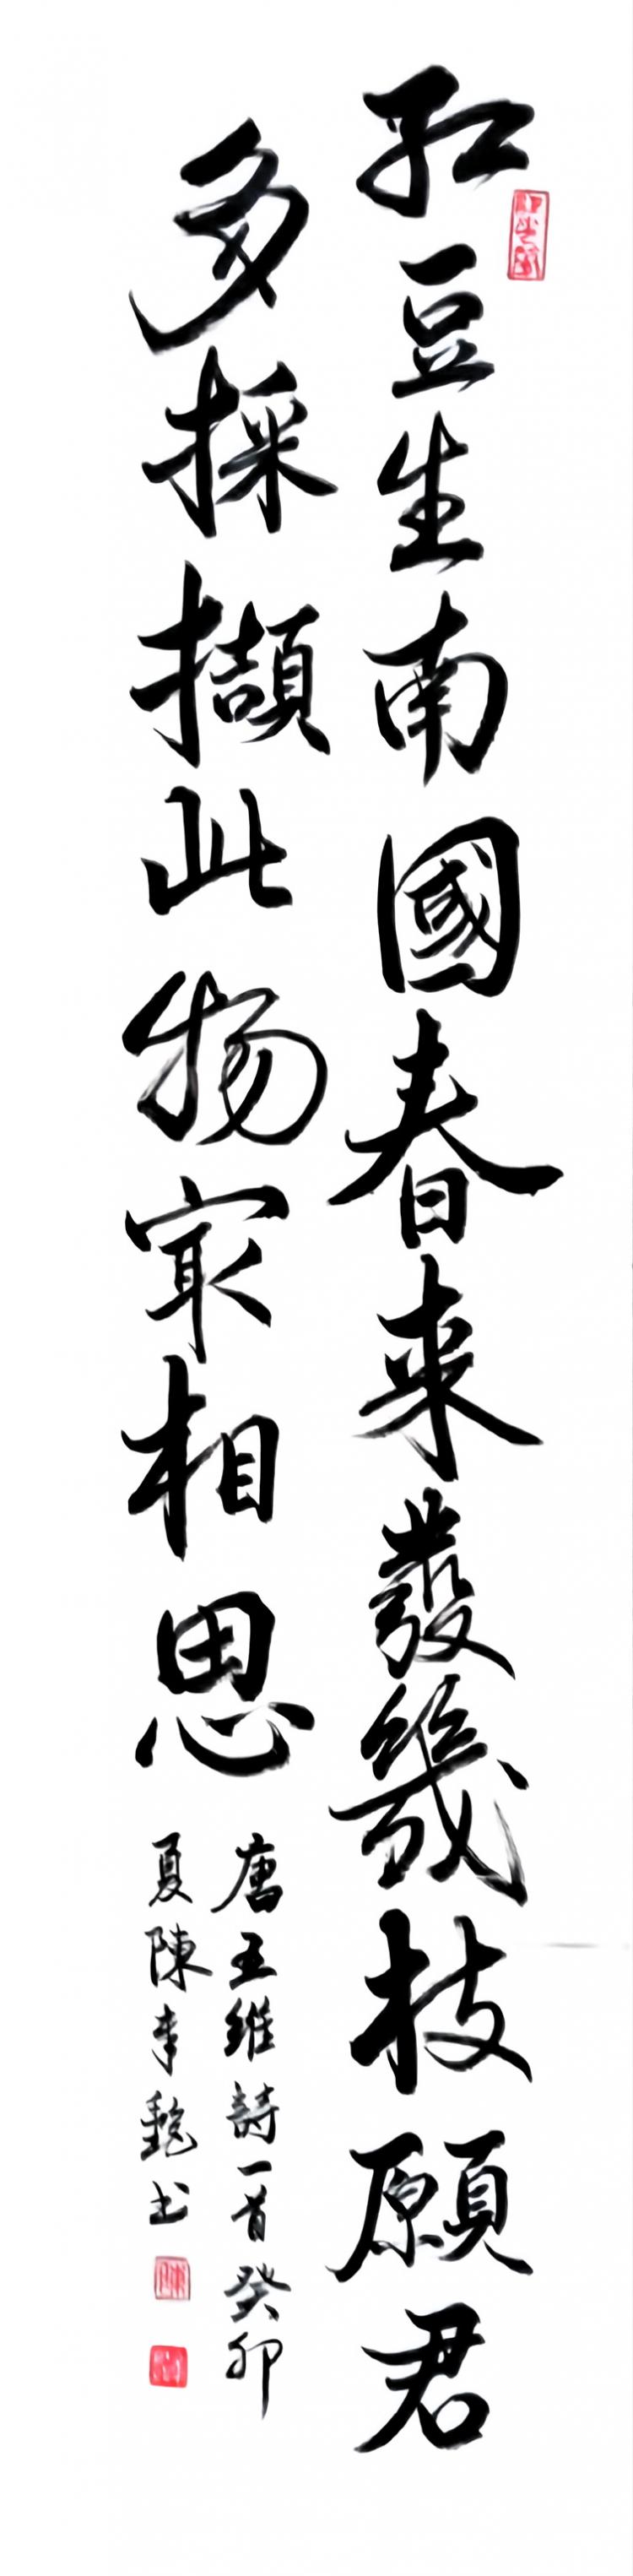 紅豆生南國春来發幾枝願君
多採擷此物冣相思
唐王維詩一首癸卯
夏陳书